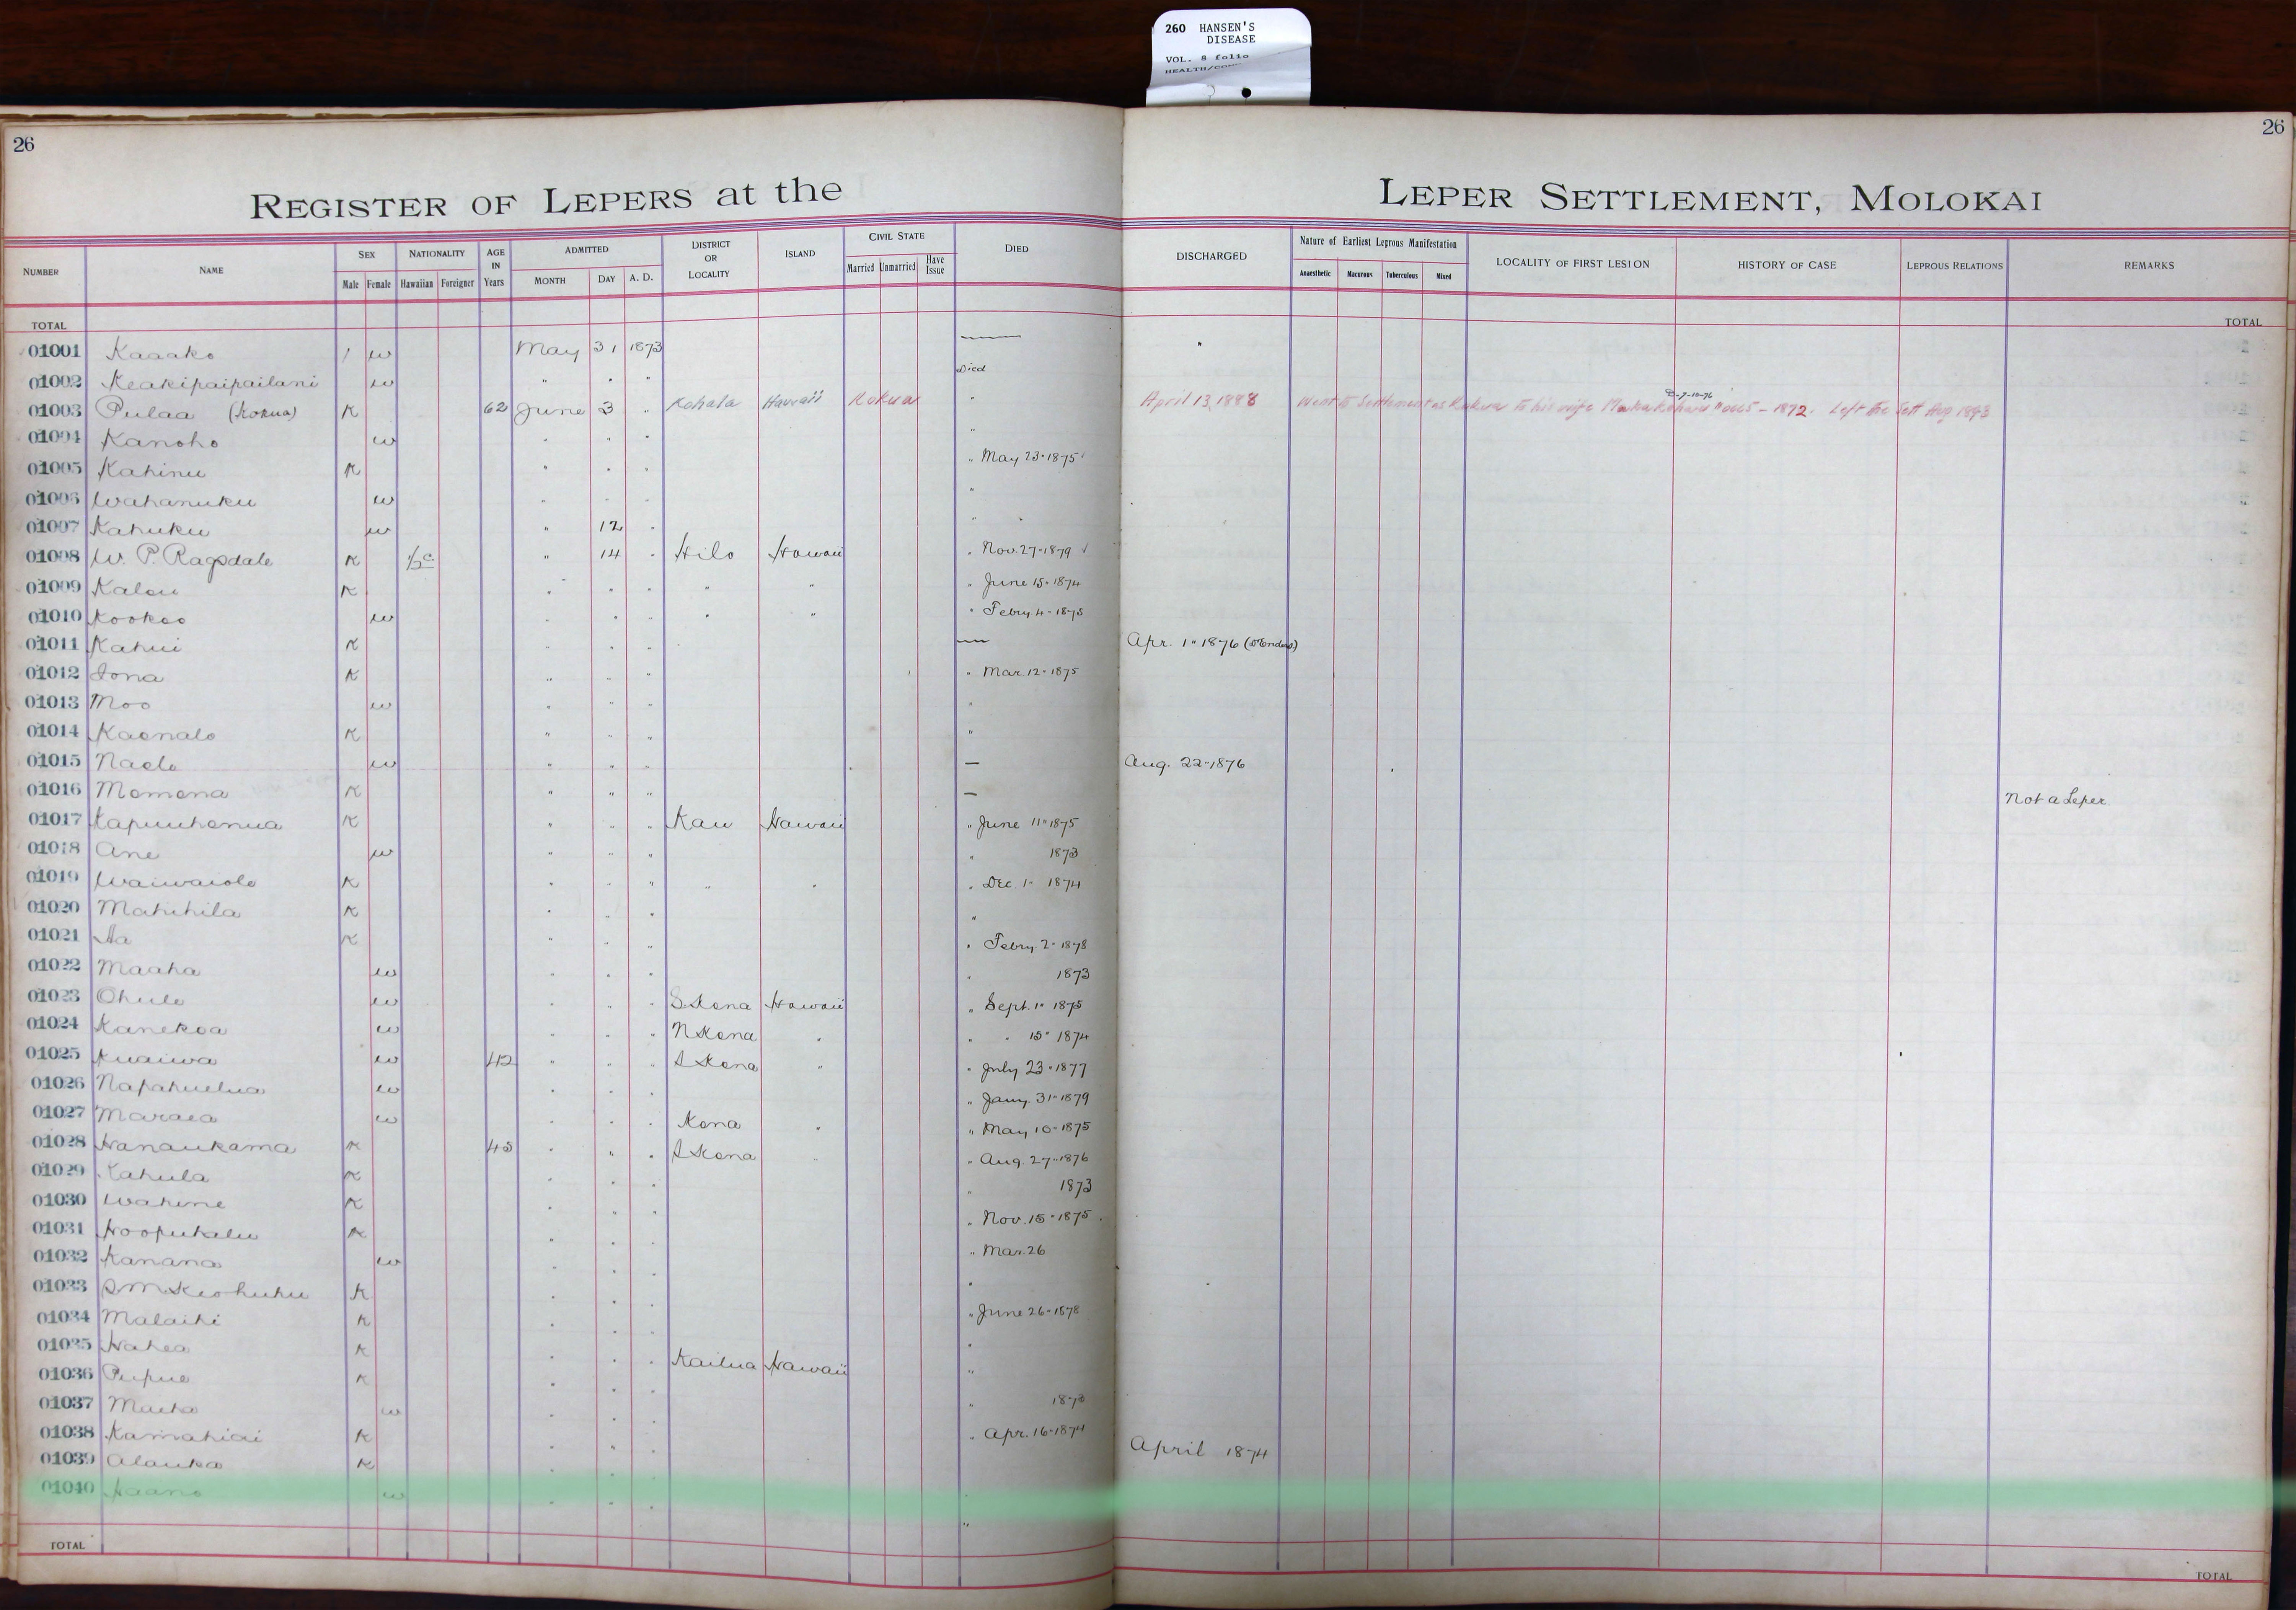 260 HANSEN'S
DISEASE
VOL. 8 folio
HEALTH/
26 26
REGISTER OF LEPERS at the LEPER SETTLEMENT, MOLOKAI
NUMBER NAME SEX Male Female NATIONALITY Hawaiian Foreigner AGE IN Years ADMITTED MONTH DAY A. D. DISTRICT OR LOCALITY ISLAND CIVIL STATE Married Unmarried Have Issue DIED DISCHARGED Nature of Earliest Leprous Manifestation Anaesthetic Macurous Tuberculous Mixed LOCALITY OF FIRST LESION HISTORY OF CASE LEPROUS RELATIONS REMARKS
TOTAL TOTAL
01001 Kaaako 1 w May 31 1873 — "
01002 Keakipaipailani w " " " Died
01003 Pulaa (Kokua) K 62 June 3 " Kohala Hawaii Kokua " April 13, 1888 Went to Settlement as Kokua to his wife 1872. Left the Sett Aug 1893
01004 Kanoho w " " " "
01005 Kahinu K " " " " May 23" 1875
01006 Wahanuku w " " " "
01007 Kahuku w " 12 " "
01008 W. P. Ragsdale K ½ c " 14 " Hilo Hawaii " Nov. 27" 1879
01009 Kalou K " " " " " " June 15" 1874
01010 Kookoo w " " " " " " Febry. 4" 1875
01011 Kahui K " " " — Apr. 1" 1876
01012 Iona K " " " " Mar. 12" 1875
01013 Moo w " " " "
01014 Kaonalo K " " " "
01015 Naelo w " " " — Aug. 22" 1876
01016 Momona K " " " — Not a Leper
01017 Kapuuhonua K " " " Kau Hawaii " June 11" 1875
01018 Ane w " " " " 1873
01019 Waiwaiole K " " " " " " Dec. 1" 1874
01020 Mahihila K " " " "
01021 Aa K " " " " Febry. 2" 1878
01022 Maaha w " " " " 1873
01023 Ohule w " " " S. Kona Hawaii " Sept. 1" 1875
01024 Kanekoa w " " " N Kona " " " 15" 1874
01025 Kuaiwa w 42 " " " S Kona " " July 23" 1877
01026 Napahuelua w " " " " Jany. 31" 1879
01027 Maraea w " " " Kona " " May 10" 1875
01028 Hanaukama K 45 " " " S Kona " " Aug. 27" 1876
01029 Kahula K " " " " 1873
01030 Wahine K " " " " Nov. 15" 1875
01031 Hoopukalu K " " " " Mar. 26
01032 Kanana w " " " "
01033 S M Keohuhu K " " " " June 26" 1878
01034 Malaihi K " " " "
01035 Hahea K " " " Kailua Hawaii "
01036 Pupue K " " " " 1873
01037 Maeha w " " " " Apr. 16" 1874
01038 Kamahiai K " " " April 1874
01039 Alauka K " " " "
01040 Haano w " " " "
TOTAL TOTAL